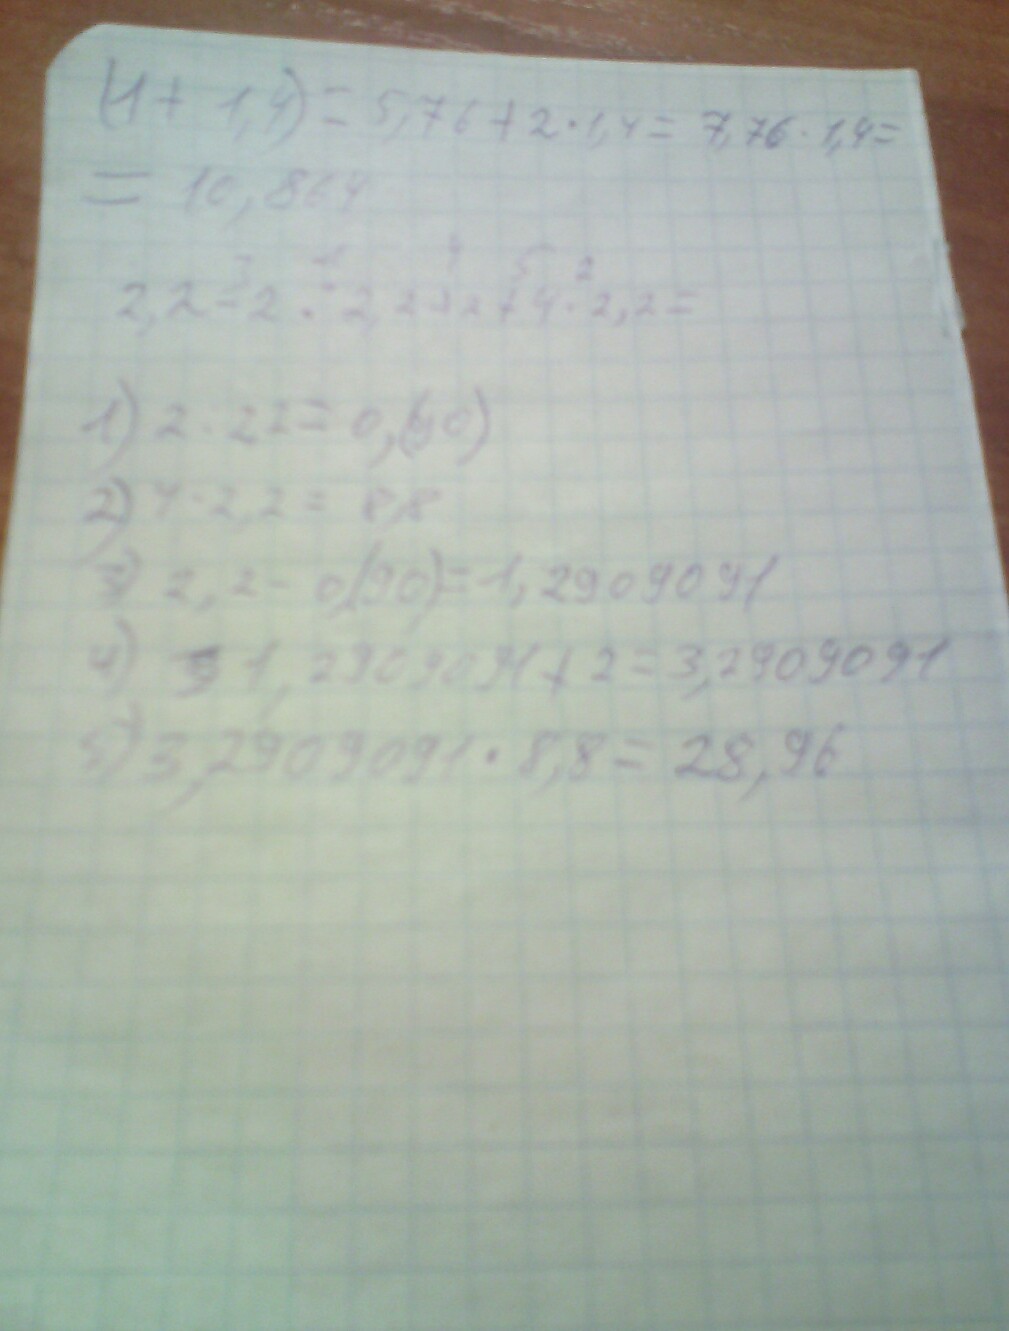 (1 + 1,4) = 5,76 + 2 · 1,4 = 7,76 · 1,4 =
= 10,864
3 1 4 5 2
2,2 - 2 : 2,2 + 2 + 4 · 2,2 =
1) 2 · 22 = 0,(90)
2) 4 · 2,2 = 8,8
3) 2,2 - 0,(90) = 1,2909091
4) 1,2909091 + 2 = 3,2909091
5) 3,2909091 · 8,8 = 28,96